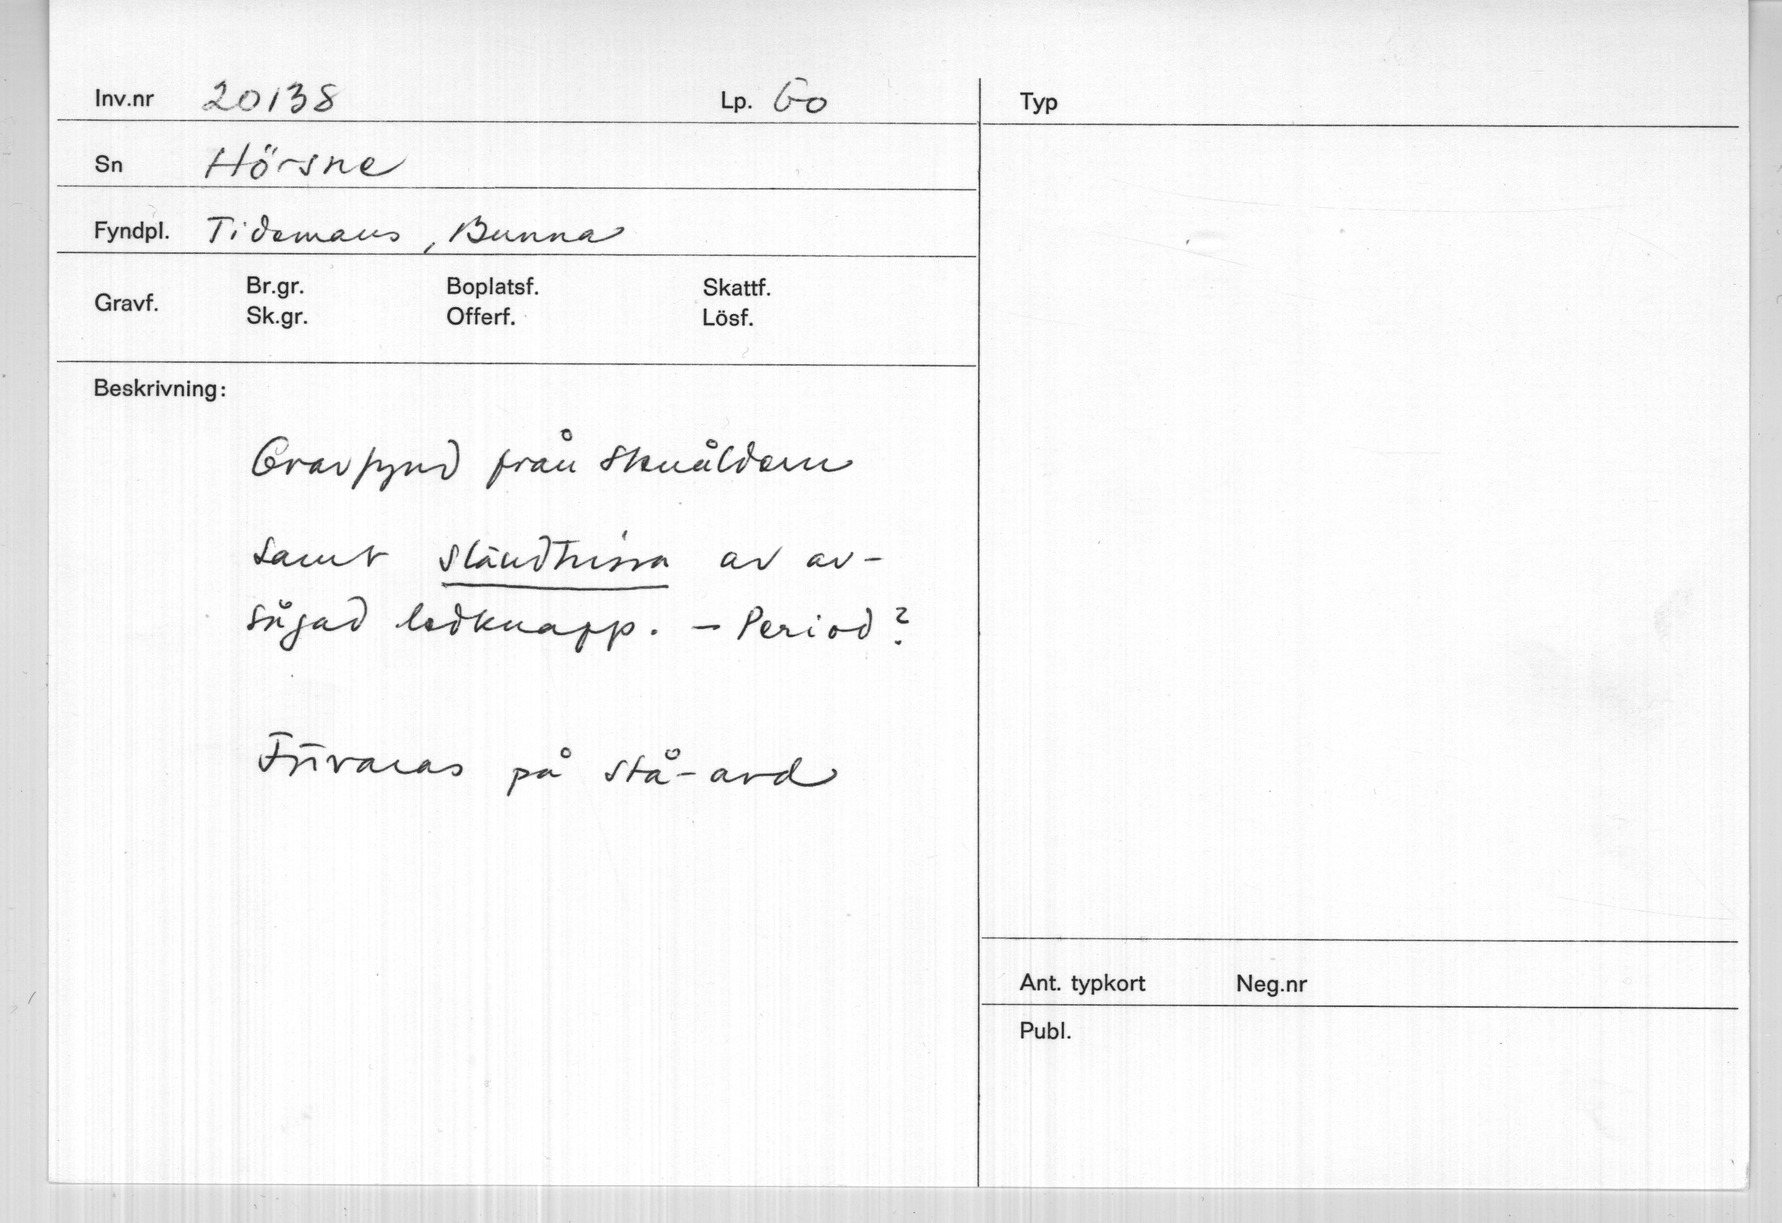 Inv.nr 20138 Lp. Go
Sn Hörsne
Fyndpl. Tidemans, Bunna
Gravf. Br.gr. Boplatsf. Skattf.
Sk.gr. Offerf. Lösf.
Beskrivning:
Gravfynd från Stenåldern
samt sländtrissa av av-
sågad ledknapp. – Period?
Förvaras på stå-avd
Typ
Ant. typkort Neg.nr
Publ.